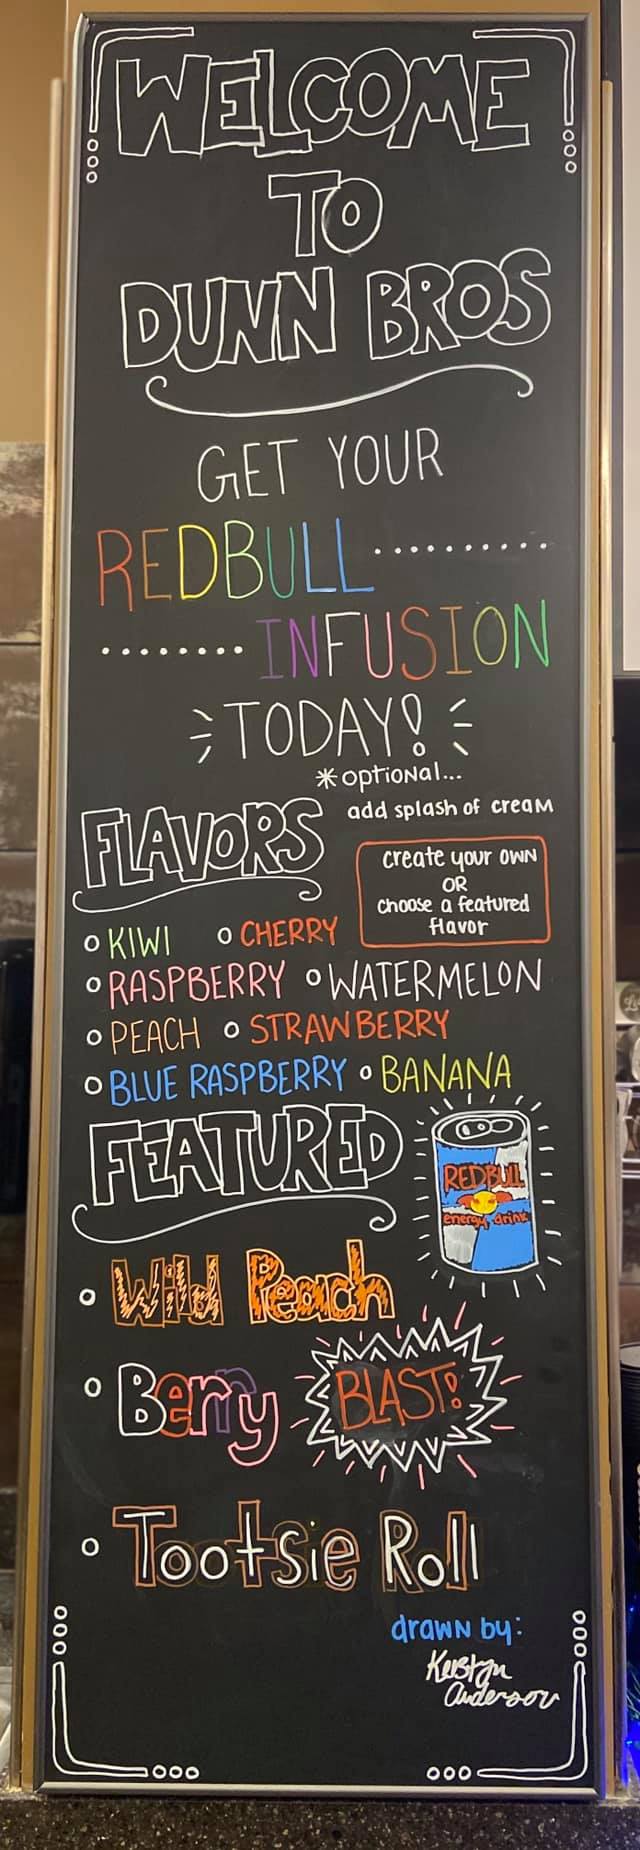 WELCOME
TO
DUNN BROS
GET YOUR
REDBULL ..........
........ INFUSION
TODAY!
*optional...
add splash of cream
FLAVORS
create your own
OR
choose a featured
flavor
KIWI CHERRY
RASPBERRY WATERMELON
PEACH STRAWBERRY
BLUE RASPBERRY BANANA
FEATURED
REDBULL
energy drink
Wild Peach
Berry BLAST!
Tootsie Roll
drawn by:
Kerstyn
Anderson